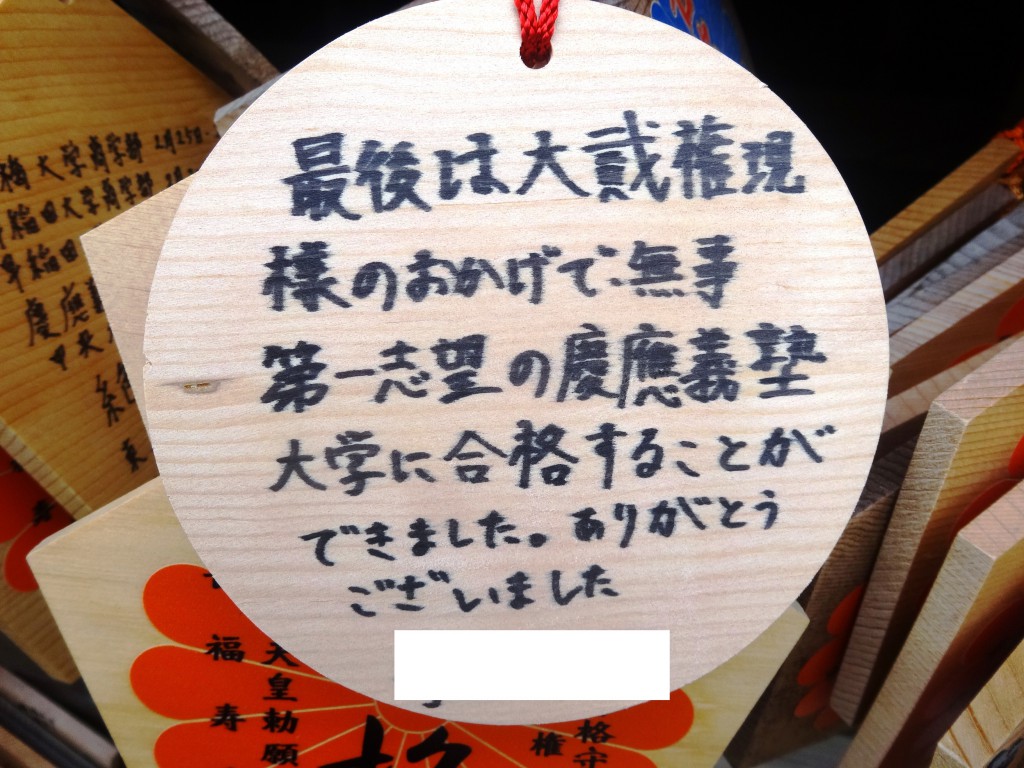 最後は大貮権現
様のおかげで無事
第一志望の慶應義塾
大学に合格することが
できました。ありがとう
ございました
大学商学部 2月25日
稲田大学商学部
早稲田
慶應義
福寿
天皇勅願
寿
格守
権